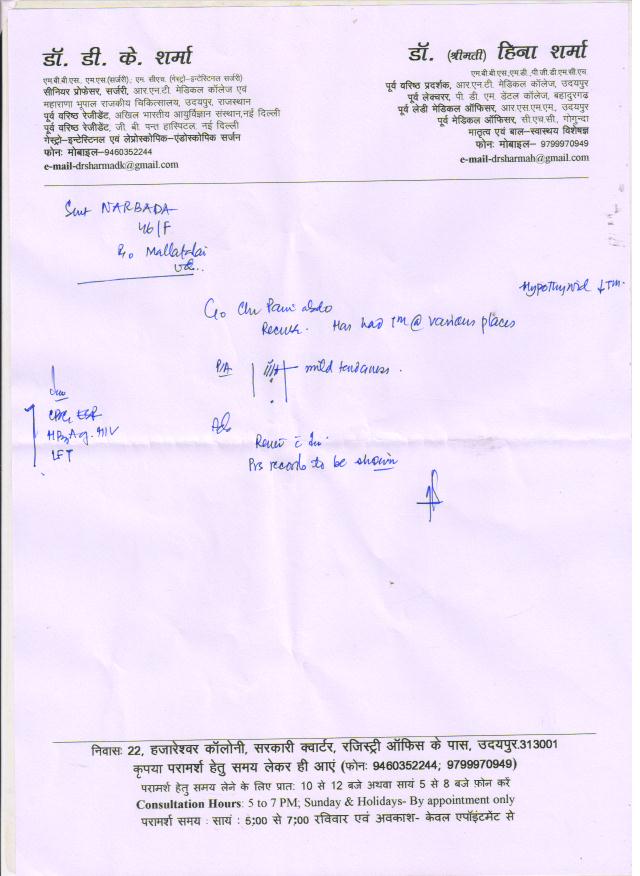 डॉ. डी. के. शर्मा
एम.बी.बी.एस., एम.एस.(सर्जरी); एम. सीएच. (गेस्ट्रो-इन्टेस्टिनल सर्जरी)
सीनियर प्रोफेसर, सर्जरी, आर.एन.टी. मेडिकल कॉलेज एवं
महाराणा भूपाल राजकीय चिकित्सालय, उदयपुर, राजस्थान
पूर्व वरिष्ठ रेजीडेंट, अखिल भारतीय आयुर्विज्ञान संस्थान,नई दिल्ली
पूर्व वरिष्ठ रेजीडेंट, जी. बी. पन्त हास्पिटल, नई दिल्ली
गेस्ट्रो-इन्टेस्टिनल एवं लेप्रोस्कोपिक-एंडोस्कोपिक सर्जन
फोनः मोबाइल-9460352244
e-mail-drsharmadk@gmail.com
डॉ. (श्रीमती) हिना शर्मा
एम.बी.बी.एस.,एम.डी., पी.जी.डी.एम.सी.एच.
पूर्व वरिष्ठ प्रदर्शक, आर.एन.टी. मेडिकल कॉलेज, उदयपुर
पूर्व लेक्चरर, पी. डी. एम. डेंटल कॉलेज, बहादुरगढ
पूर्व लेडी मेडिकल ऑफिसर, आर.एस.एम.एम., उदयपुर
पूर्व मेडिकल ऑफिसर, सी.एच.सी., गोगुन्दा
मातृत्व एवं बाल-स्वास्थय विशेषज्ञ
फोनः मोबाइल– 9799970949
e-mail-drsharmah@gmail.com
Smt NARBADA
46/F
R/o Mallatalai
Hypothyroid ↓ Tm.
C/o Chr Pain abdo
Recurr. Has had Tm @ various places
P/A mild tenderness.
Inv
CBC, ESR
HBsAg. HIV
LFT
Adv
Review c̄ Inv.
Prs records to be shown
निवासः 22, हजारेश्वर कॉलोनी, सरकारी क्वार्टर, रजिस्ट्री ऑफिस के पास, उदयपुर.313001
कृपया परामर्श हेतु समय लेकर ही आएं (फोनः 9460352244; 9799970949)
परामर्श हेतु समय लेने के लिए प्रातः 10 से 12 बजे अथवा सायं 5 से 8 बजे फ़ोन करें
Consultation Hours: 5 to 7 PM; Sunday & Holidays- By appointment only
परामर्श समय : सायं : 5;00 से 7;00 रविवार एवं अवकाश- केवल एपॉइंटमेंट से